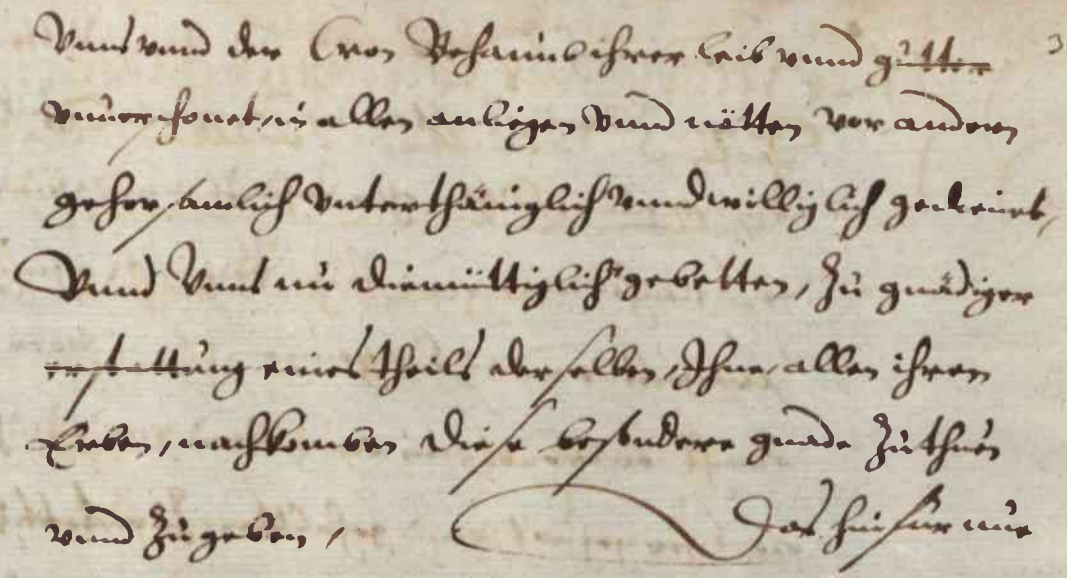 Vnns vnnd der Cron Behaimb ihrer leib vnnd gütter
vnuerschonet, in allen anligen vnnd nötten vor andern
gehorsamlich vnterthäniglich vnnd williglich gedienet,
Vnnd Vnns nu diemüttiglich gebetten, Zu gnädiger
erstattung eines theils derselben, Ihne, allen ihren
Erben, nachkomben diese besondere gnade Zuthuen
vnnd Zugeben, Das hinfür nue